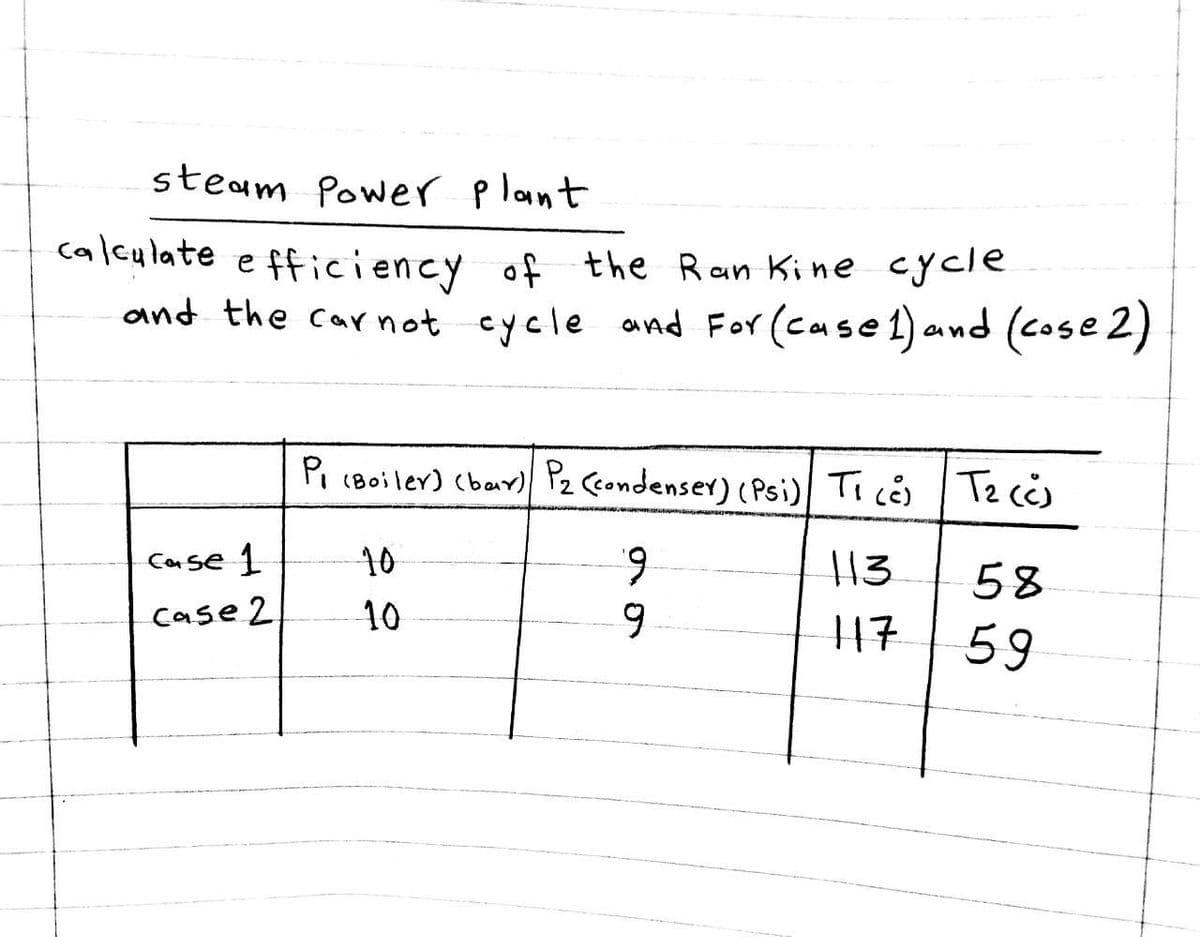 steam Power plant
calculate efficiency of the RanKine cycle
and the carnot cycle and For (case 1) and (case 2)
P1 (Boiler) (bar) P2 (condenser) (Psi) T1 (c°) T2 (c°)
Case 1 10 9 113 58
case 2 10 9 117 59